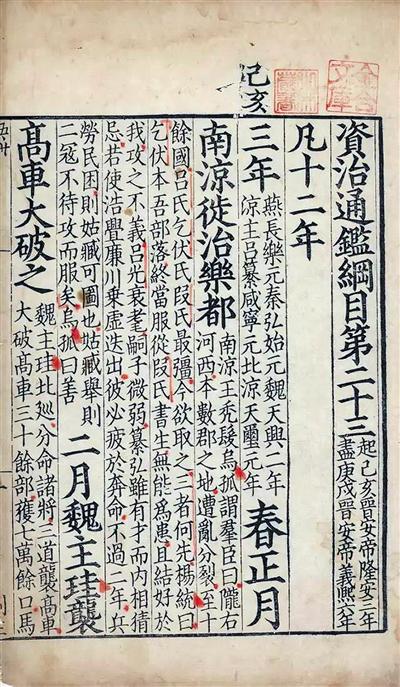 己亥
資治通鑑綱目第二十三
起己亥晉安帝隆安三年
盡庚戌晉安帝義熙六年
凡十二年
三年
燕長樂元秦弘始元魏天興二年
涼主呂纂咸寧元北涼天璽元年
春正月
南涼徙治樂都
南涼王禿髮烏孤謂羣臣曰隴右
河西本數郡之地遭亂分裂至十
餘國呂氏乞伏氏段氏最彊今欲取之三者何先楊統曰
乞伏本吾部落終當服從段氏書生無能爲患且結好於
我攻之不義呂光衰耄嗣子微弱纂弘雖有才而內相猜
忌若使浩亹廉川乘虛迭出彼必疲於奔命不過二年兵
勞民困則姑臧可圖也姑臧舉則
二寇不待攻而服矣烏孤曰善
二月魏主珪襲
髙車大破之
魏主珪北廵分命諸將三道襲髙車
大破髙車三十餘部獲七萬餘口馬